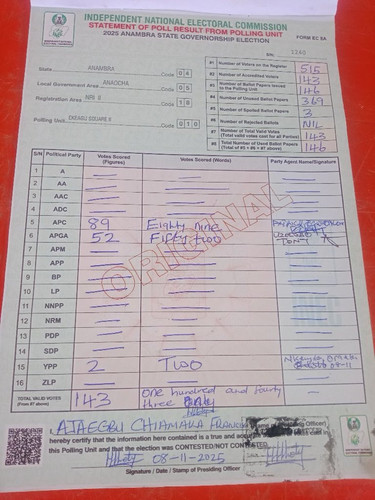 INDEPENDENT NATIONAL ELECTORAL COMMISSION
STATEMENT OF POLL RESULT FROM POLLING UNIT
2025 ANAMBRA STATE GOVERNORSHIP ELECTION
FORM EC 8A
S/N:
State ANAMBRA Code 04
Local Government Area ANAOCHA Code 05
Registration Area NRI II Code 10
Polling Unit EKEAGU SQUARE II Code 010
#1 Number of Voters on the Register 515
#2 Number of Accredited Voters 143
#3 Number of Ballot Papers Issued to the Polling Unit
#4 Number of Unused Ballot Papers 369
#5 Number of Spoiled Ballot Papers 3
#6 Number of Rejected Ballots NIL
#7 Number of Total Valid Votes (Total valid votes cast for all Parties) 143
#8 Total Number of Used Ballot Papers (Total of #5 + #6 + #7 above) 146
S/N Political Party Votes Scored (Figures) Votes Scored (Words) Party Agent Name/Signature
1 A
2 AA
3 AAC
4 ADC
5 APC 89 Eighty nine
6 APGA 52 Fifty two
7 APM
8 APP
9 BP
10 LP
11 NNPP
12 NRM
13 PDP
14 SDP
15 YPP 2 Two
16 ZLP
TOTAL VALID VOTES (From #7 above) 143 One hundred and fourty three only
ORIGINAL
AJAEGBU CHIAMAKA
hereby certify that the information here contained is a true and
this Polling Unit and that the election was CONTESTED/NOT CONTESTED
08-11-2025
Signature / Date / Stamp of Presiding Officer